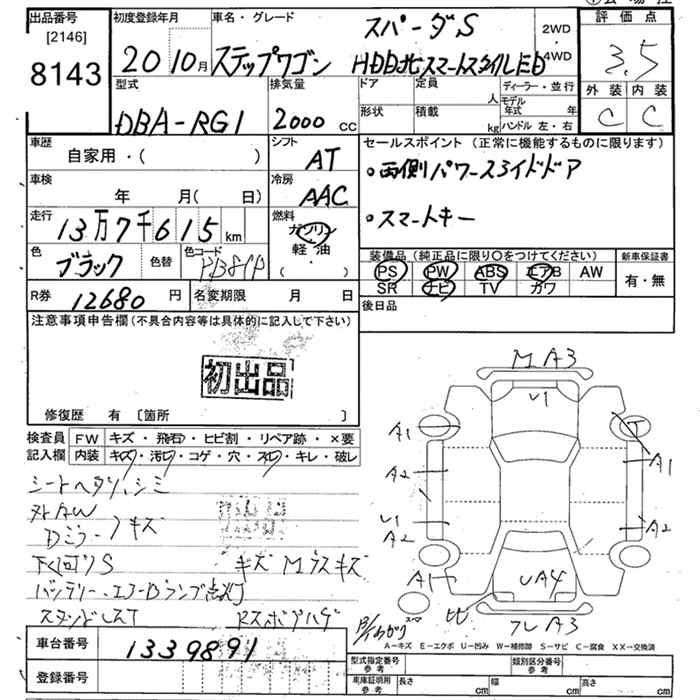 出品番号
[2146]
8143
初度登録年月
20 10月
車名・グレード
スパーダS
ステップワゴン HDDナビスマートスタイルED
2WD
4WD
評価点
3.5
外装 内装
C C
型式
DBA-RG1
排気量
2000 CC
ドア 定員 人
形状 積載 kg
ディーラー・並行
モデル年式 年
ハンドル 左・右
車歴
自家用・( )
シフト
AT
車検
年 月( 日)
冷房
AAC
走行
13万7千615 km
燃料
ガソリン
軽・油
( ・ )
色
ブラック
色替
色コード
R券 12680 円
名変期限 月 日
セールスポイント (正常に機能するものに限ります)
・両側パワースライドドア
・スマートキー
装備品 (純正品に限り〇をつけてください)
PS PW ABS エアB AW
SR ナビ TV カワ
新車保証書
有・無
後日品
注意事項申告欄(不具合内容等は具体的に記入して下さい)
初出品
修復歴 有 〔箇所 〕
検査員 FW キズ・飛石・ヒビ割・リペア跡・×要
記入欄 内装 キズ・汚れ・コゲ・穴・スレ・キレ・破レ
シートヘタリ、シミ
外AW
Dミラー キズ
下回りS キズ Mラスキズ
バッテリー、エアーBランプ点灯
車台番号 1339891
登録番号
M A3
U1
A1
A2
U1
A2
A1
T
A1
A2
UA4
フレA3
A-キズ E-エクボ U-凹み W-補修跡 S-サビ C-腐食 XX-交換済
型式指定番号 参考
類別区分番号 参考
車庫証明用 参考 長さ cm 幅 cm 高さ cm